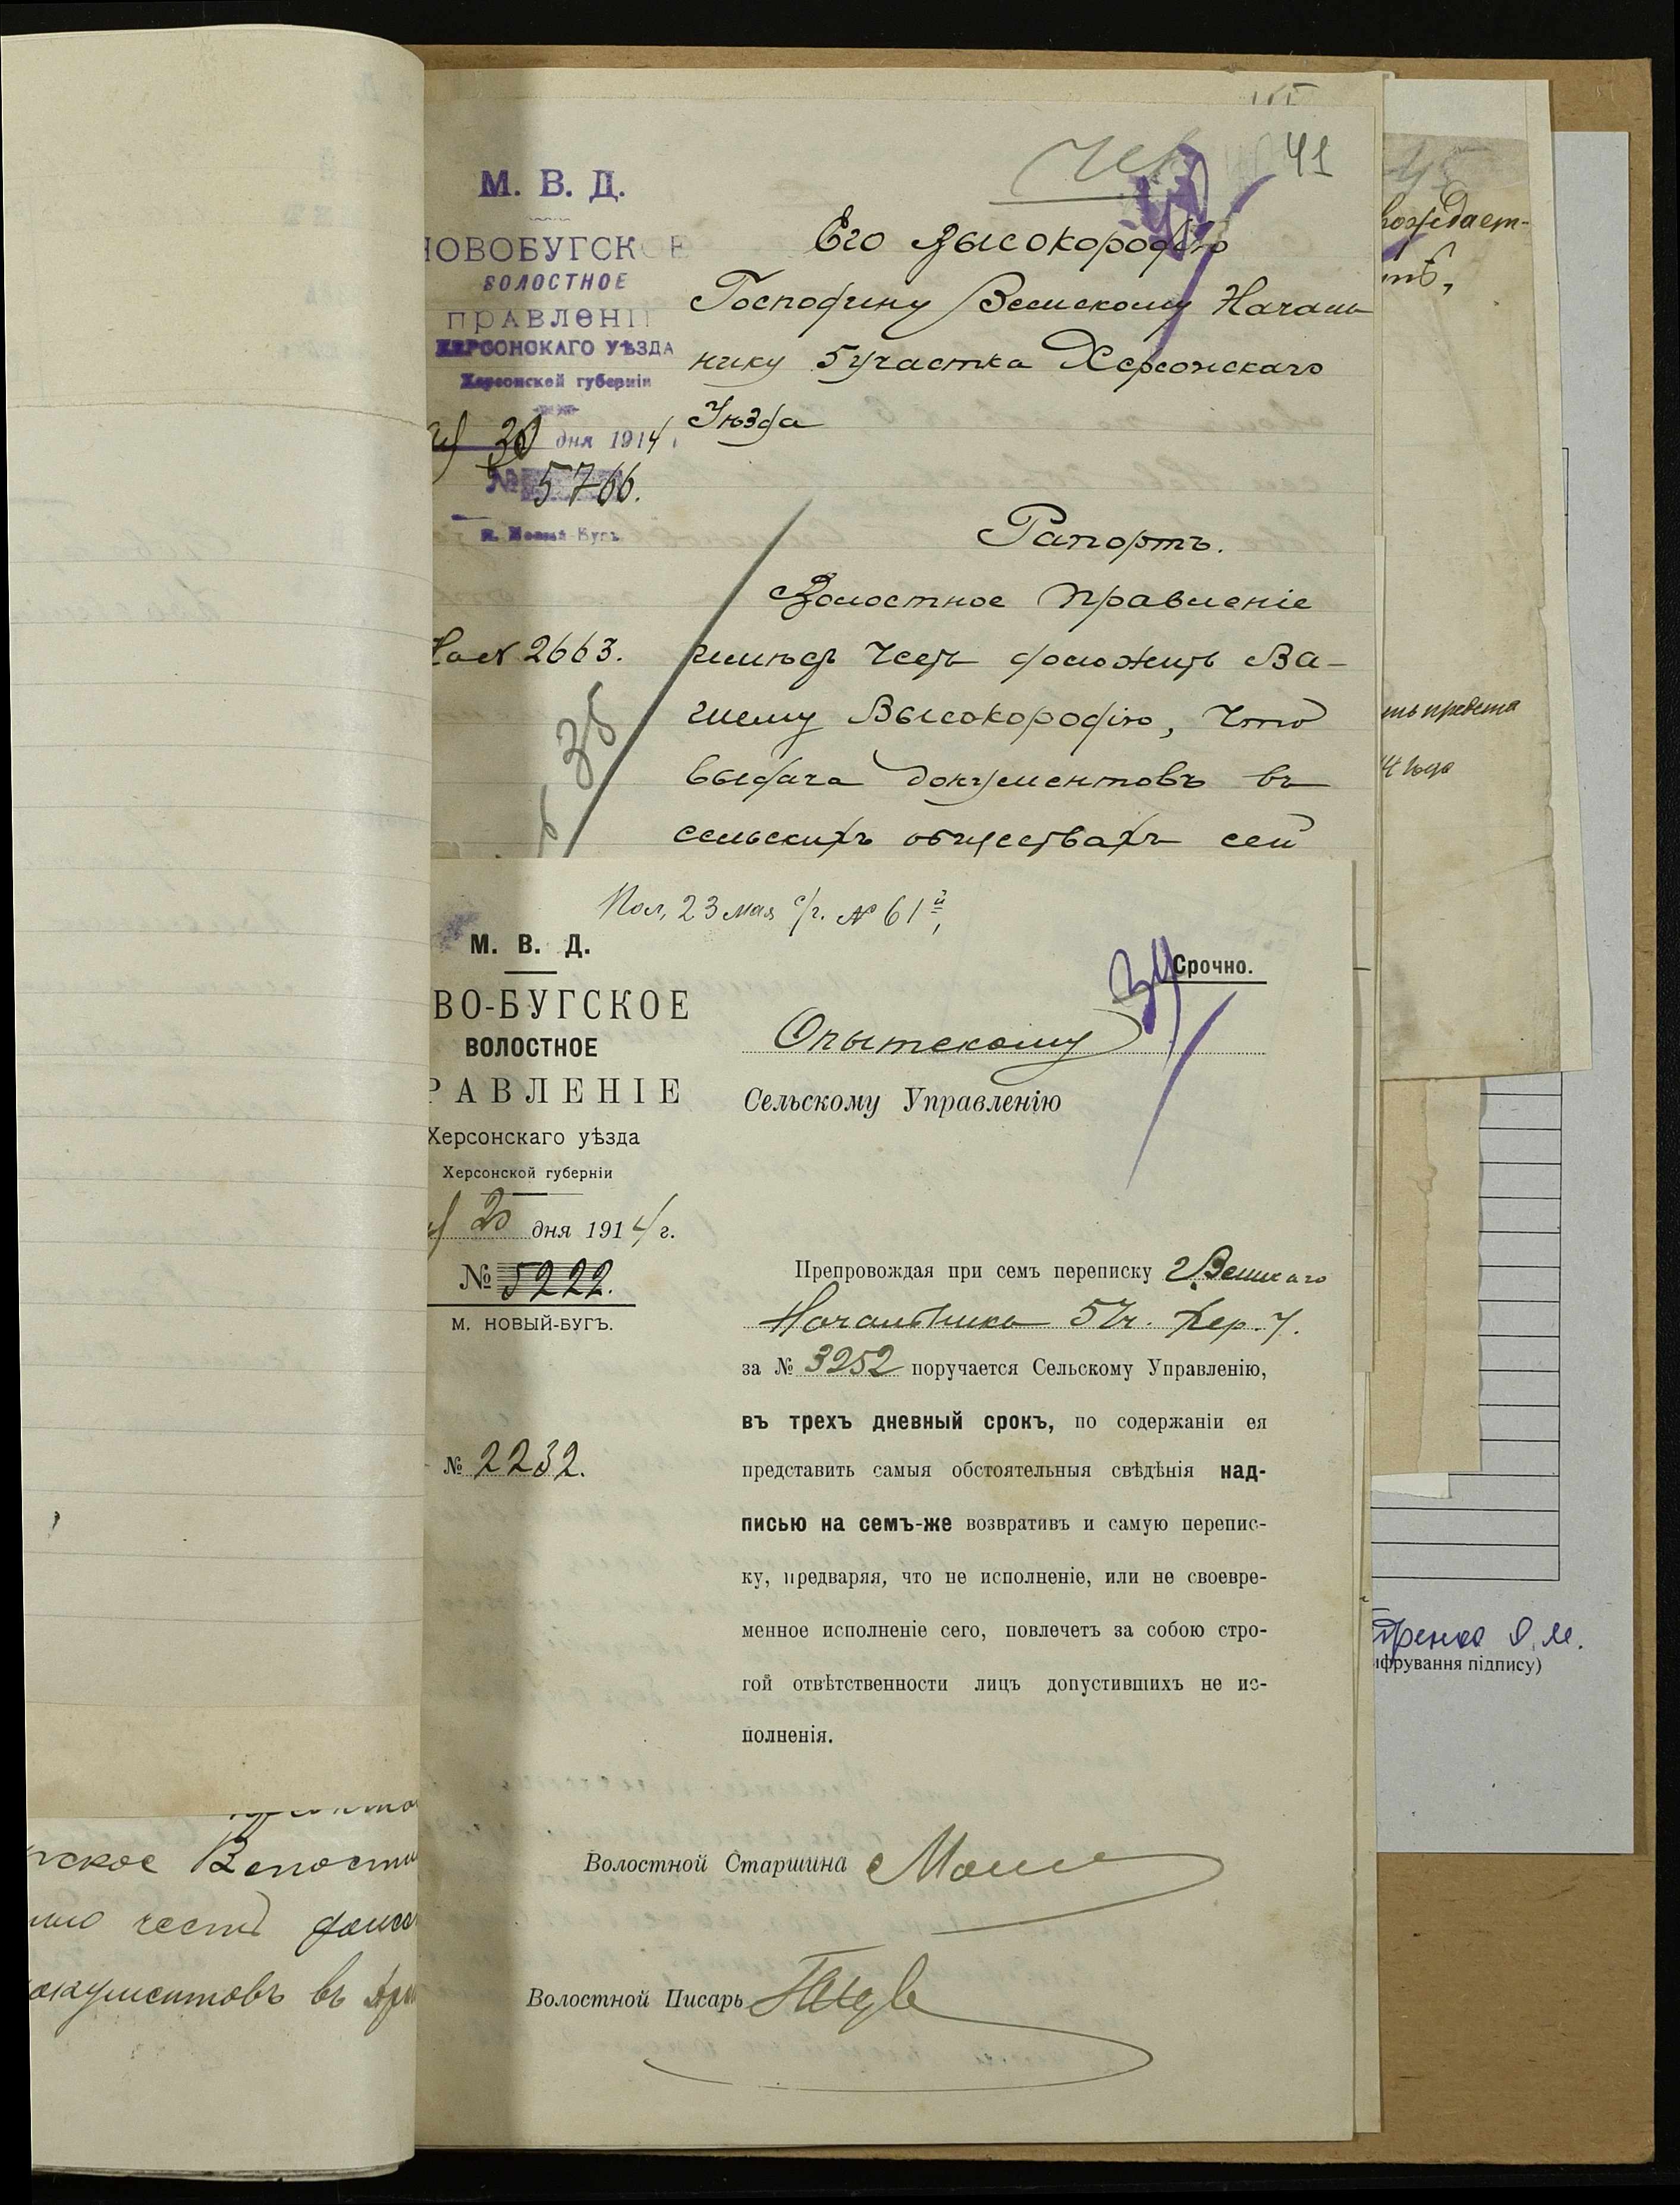 41
М. В. Д.
НОВОБУГСКОЕ
ВОЛОСТНОЕ
ПРАВЛЕНІЕ
ХЕРСОНСКАГО УѢЗДА
Херсонской губерніи
30 дня 1914
№ 5766.
м. Новый-Бугъ
На № 2663.
35
Его Высокородію
Господину Земскому Началь
нику 5 участка Херсонскаго
Уѣзда
Рапортъ.
Волостное Правленіе
имѣетъ честь доложить Ва-
шему Высокородію, что
выдача документовъ въ
сельскихъ обществахъ сей
Пол. 23 мая с/г. № 61
М. В. Д.
ВО-БУГСКОЕ
ВОЛОСТНОЕ
РАВЛЕНІЕ
Херсонскаго уѣзда
Херсонской губерніи
20 дня 1914 г.
№ 5222.
М. НОВЫЙ-БУГЪ.
№ 2232.
34
Срочно.
Опытскому
Сельскому Управленію
Препровождая при семъ переписку Земскаго
Начальника 5 Уч. Хер. У.
за № 3252 поручается Сельскому Управленію,
въ трехъ дневный срокъ, по содержаніи ея
представить самыя обстоятельныя свѣдѣнія над-
писью на семъ-же возвративъ и самую перепис-
ку, предваряя, что не исполненіе, или не своевре-
менное исполненіе сего, повлечетъ за собою стро-
гой отвѣтственности лицъ допустившихъ не ис-
полненія.
Волостной Старшина
Волостной Писарь
рское Волостн
честь доло
окументовъ въ
вождает-
ть предста
14 года
тренко О. М.
ифрування підпису)